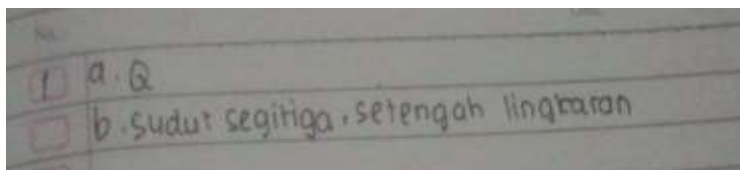 No.
1 a. Q
b. sudut segitiga, setengah lingkaran